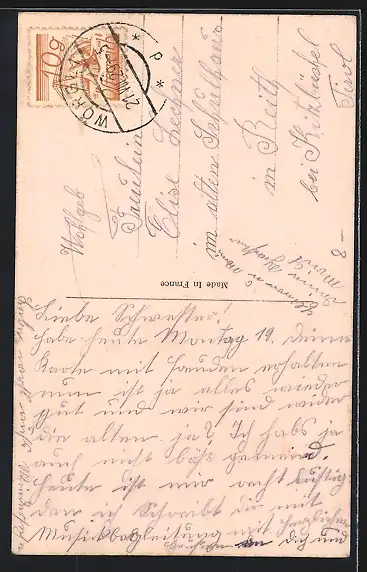 10g
WÖRGL
Wohlgeb
Fräulein
Elise Lechner
im alten Schulhaus
in Reith
bei Kitzbühel
Tirol
Made In France
Liebe Schwester!
habe heute Montag 19. deine
Karte mit freuden erhalten
nun ist ja alles wieder
gut und wir sind wider
die alten. ja? Ich habs ja
auch nicht böß gemeind.
Heute ist mir recht lustig
den ich Schreibt dir mit
Musikbegleitung mit herzlichen
Grüßen an dich und